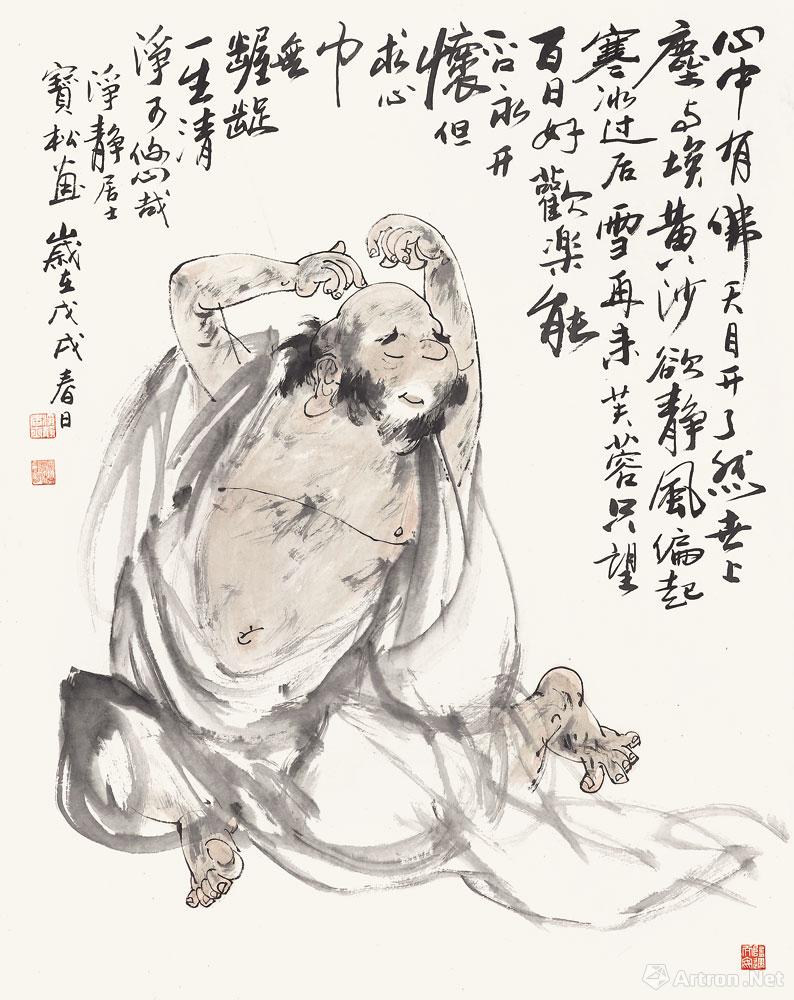 心中有佛天目开了然世上
塵与埃黄沙欲静風偏起
寒冰过后雪再来芙蓉只望
百日好歡楽能
否永开
懷但
求心
巾
無
齷齪
一生清
淨可悠哉
淨静居士
寶松画歲在戊戌春日
Artron.Net